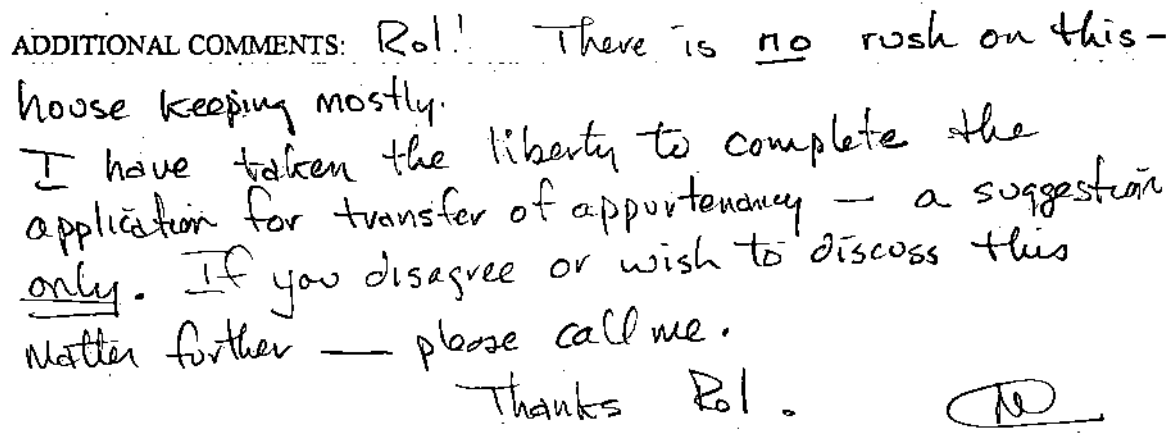 ADDITIONAL COMMENTS: Rol! There is no rush on this -
house keeping mostly.
I have taken the liberty to complete the
application for transfer of appurtenancy — a suggestion
only. If you disagree or wish to discuss this
matter further — please call me.
Thanks Rol.